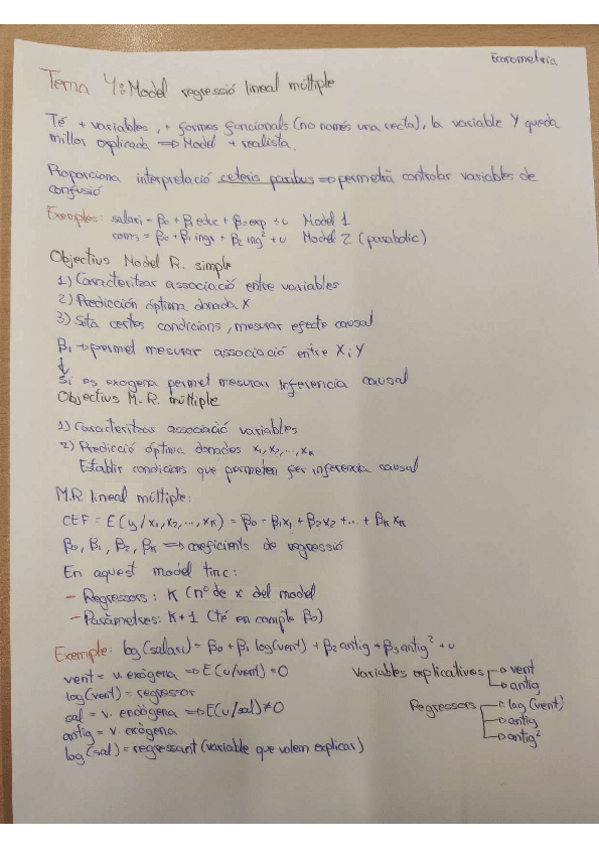 Econometria
Tema 4: Model regressió lineal múltiple
Té + variables, + formes funcionals (no només una recta), la variable Y queda
millor explicada => Model + realista.
Proporciona interpretació ceteris paribus => permetrà controlar variables de
confusió
Exemples: salari = β0 + β1 educ + β2 exp + u Model 1
cons = β0 + β1 ings + β2 ing² + u Model 2 (parabolic)
Objectius Model R. simple
1) Caracteritzar associació entre variables
2) Predicción óptima donada X
3) Sota certes condicions, mesurar efecte causal
β1 → permet mesurar associació entre X i Y
↓
Si es exogena permet mesurar inferencia causal
Objectius M.R. múltiple
1) Caracteritzar associació variables
2) Predicció óptima donades x1, x2, ..., xk
Establir condicions que permeten fer inferencia causal
M.R lineal múltiple:
CEF = E(y/x1, x2, ..., xk) = β0 + β1x1 + β2x2 + ... + βk xk
β0, β1, β2, βk => coeficients de regressió
En aquest model tinc:
- Regressors: K (nº de x del model
- Paràmetres: K+1 (té en compte β0)
Exemple: log(salari) = β0 + β1 log(vent) + β2 antig + β3 antig² + u
vent = v. exògena => E(u/vent) = 0
log(vent) = regressor
sal = v. endògena => E(u/sal) ≠ 0
antig = v. exògena
log(sal) = regressant (variable que volem explicar)
Variables explicatives → vent
→ antig
Regressors → log(vent)
→ antig
→ antig²